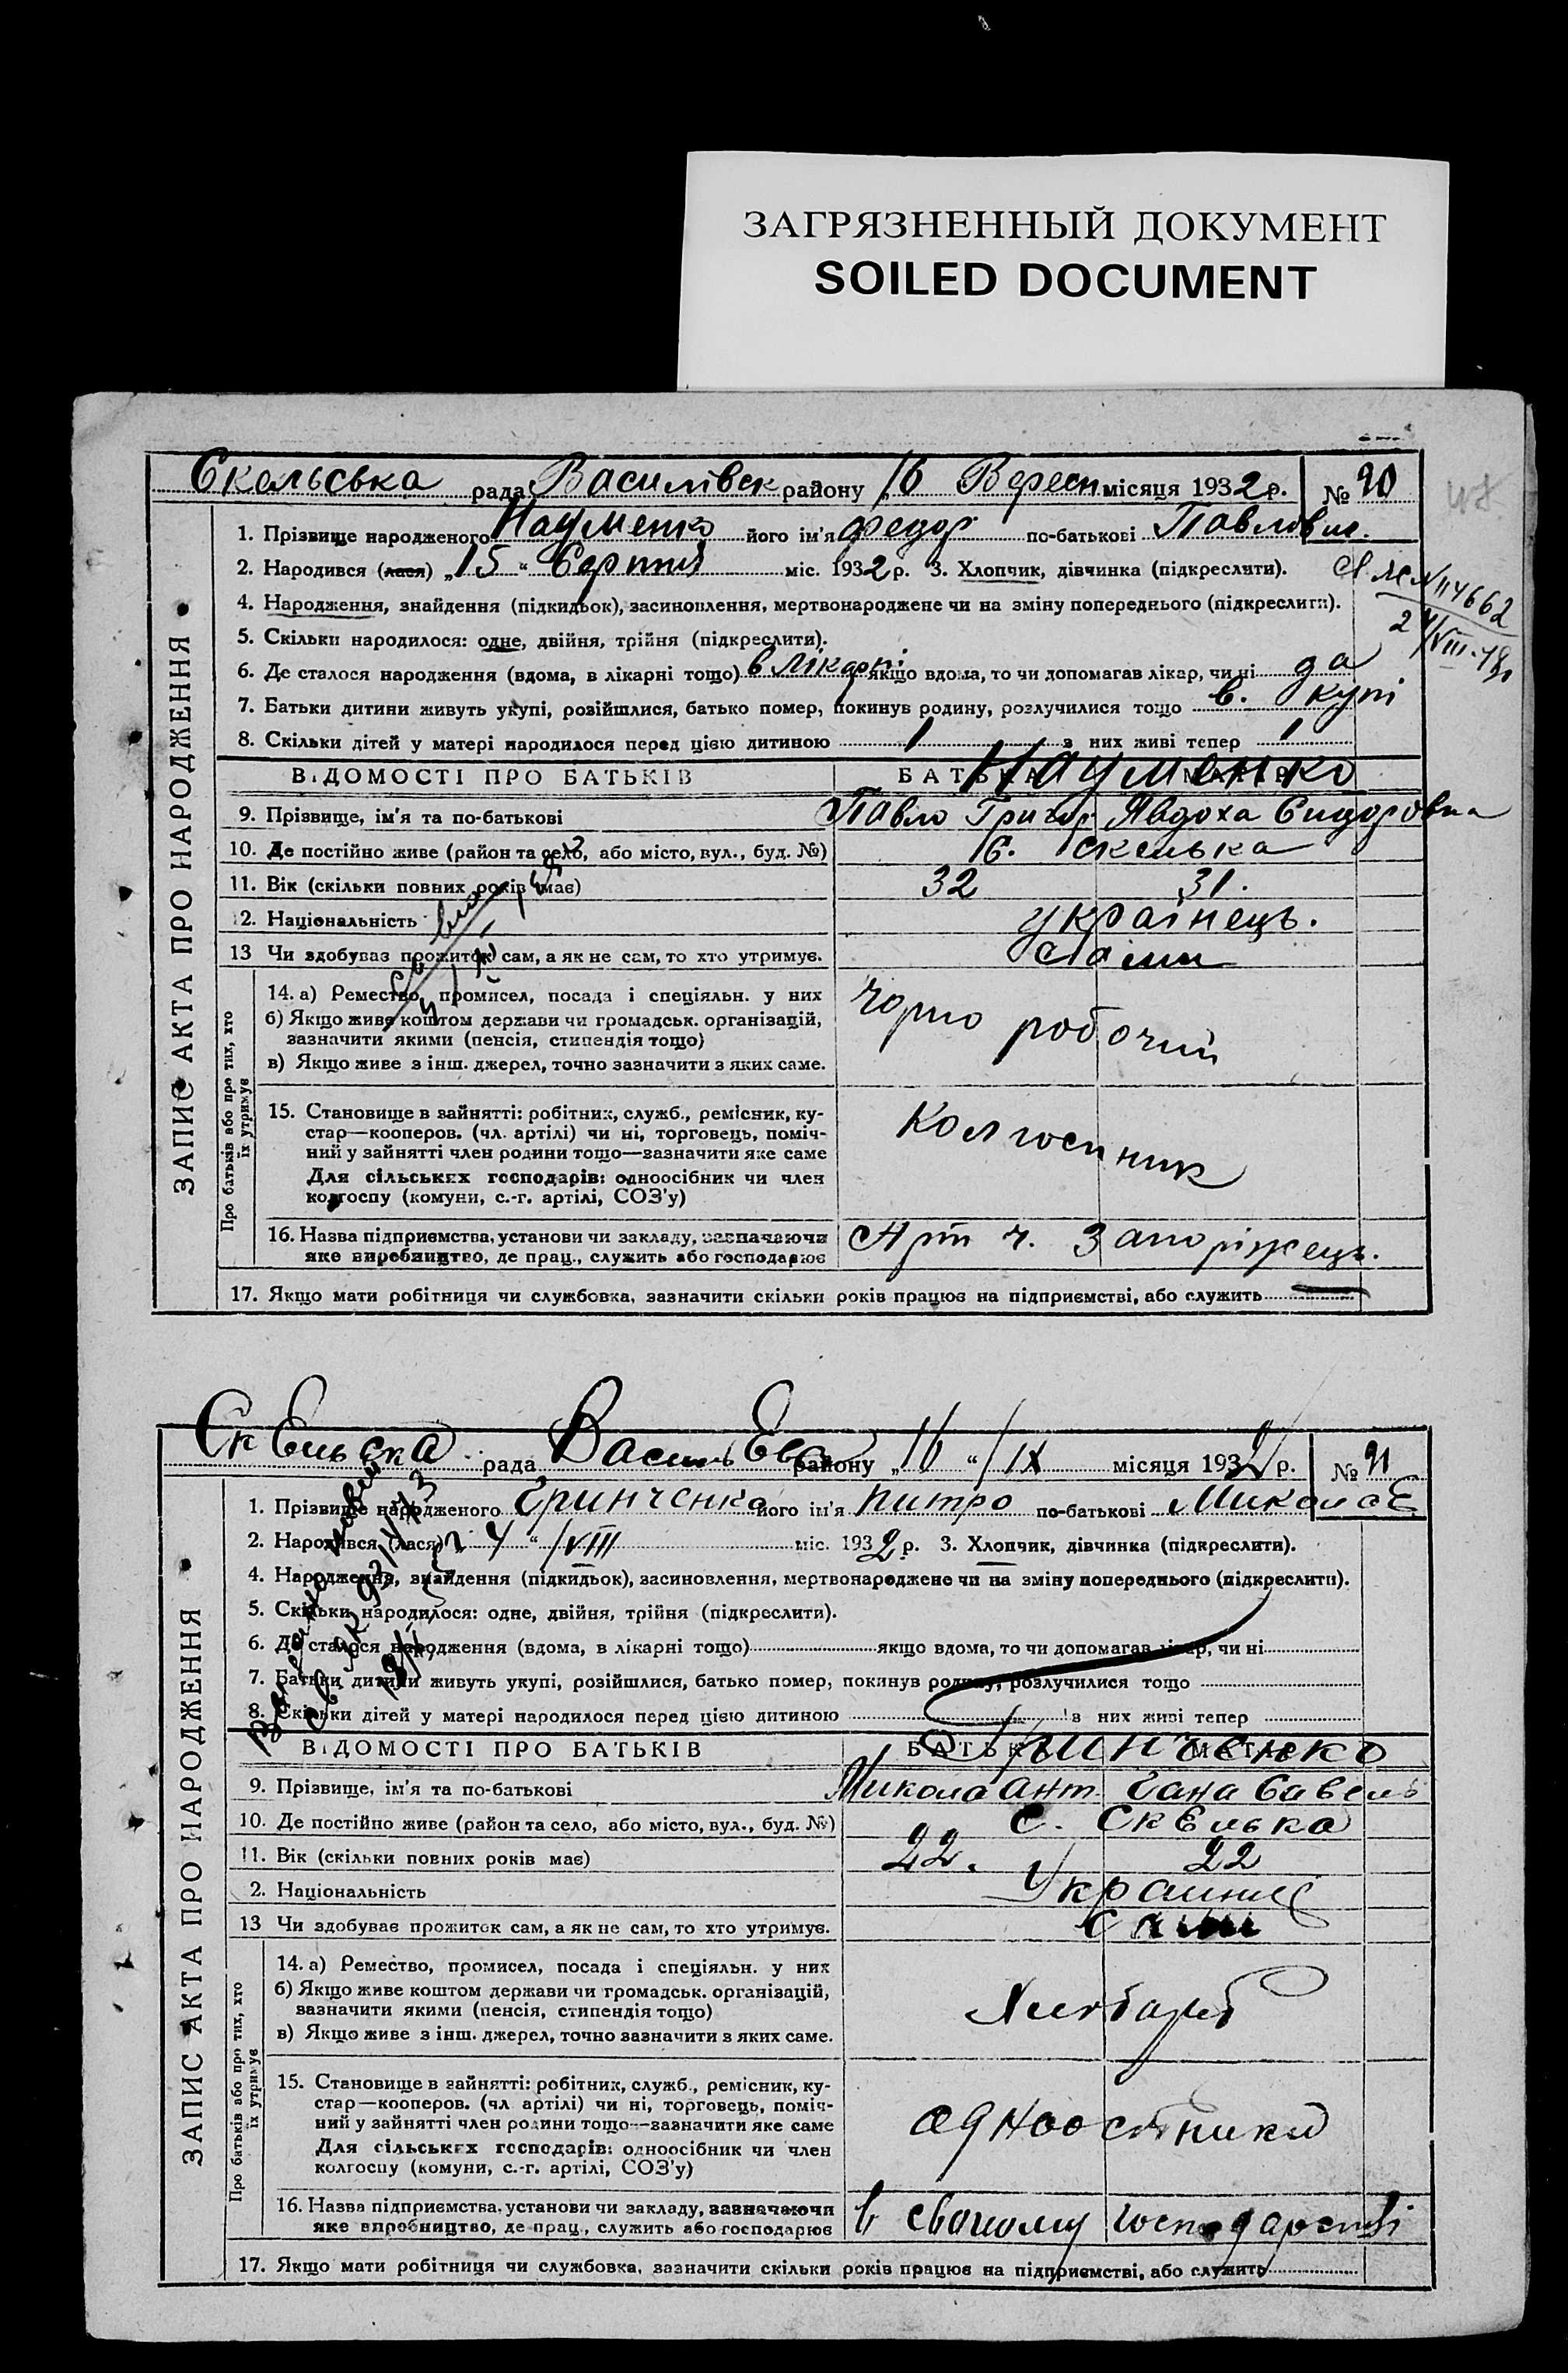 ЗАГРЯЗНЕННЫЙ ДОКУМЕНТ
SOILED DOCUMENT
Скельська рада Василівск району „16 Вересн місяця 1932 р. № 90
ЗАПИС АКТА ПРО НАРОДЖЕННЯ
1. Прізвище народженого Науменко його ім'я Федор по-батькові Павлович.
2. Народився (лася) „15“ Серпня міс. 1932 р. 3. Хлопчик, дівчинка (підкреслити).
4. Народження, знайдення (підкидьок), засиновлення, мертвонароджене чи на зміну попереднього (підкреслити).
5. Скільки народилося: одне, двійня, трійня (підкреслити).
6. Де сталося народження (вдома, в лікарні тощо) в Лікарні якщо вдома, то чи допомагав лікар, чи ні да
7. Батьки дитини живуть укупі, розійшлися, батько помер, покинув родину, розлучилися тощо в. купі
8. Скільки дітей у матері народилося перед цією дитиною 1 з них живі тепер 1
№ 114662
ВІДОМОСТІ ПРО БАТЬКІВ БАТЬКО МАТИ Науменко
9. Прізвище, ім'я та по-батькові Павло Григор Явдоха Сидоровна
10. Де постійно живе (район та село, або місто, вул., буд. №) с. Скелька
11. Вік (скільки повних років має) 32 31.
12. Національність українець.
13 Чи здобуває прожиток сам, а як не сам, то хто утримує. Сами
Про батьків або про тих, хто їх утримує
14. а) Ремество, промисел, посада і спеціяльн. у них
б) Якщо живе коштом держави чи громадськ. організацій,
зазначити якими (пенсія, стипендія тощо)
в) Якщо живе з інш. джерел, точно зазначити з яких саме.
Чорно робочий
15. Становище в зайнятті: робітник, служб., ремісник, ку-
стар—кооперов. (чл. артілі) чи ні, торговець, поміч-
ний у зайнятті член родини тощо—зазначити яке саме
Для сільських господарів: одноосібник чи член
колгоспу (комуни, с.-г. артілі, СОЗ'у)
Колгоспник
16. Назва підприємства, установи чи закладу, зазначаючи
яке виробництво, де прац., служить або господарює
Арт ч. Запоріжець.
17. Якщо мати робітниця чи службовка, зазначити скільки років працює на підприємстві, або служить —
СкЕльська рада ВасильЕвс району „16“ /IX місяця 1932 р. № 91
ЗАПИС АКТА ПРО НАРОДЖЕННЯ
1. Прізвище народженого Гринченко його ім'я Питро по-батькові МиколаЕ
2. Народився (лася) „4“ /VIII міс. 1932 р. 3. Хлопчик, дівчинка (підкреслити).
4. Народження, знайдення (підкидьок), засиновлення, мертвонароджене чи на зміну попереднього (підкреслити).
5. Скільки народилося: одне, двійня, трійня (підкреслити).
6. Де сталося народження (вдома, в лікарні тощо) якщо вдома, то чи допомагав лікар, чи ні
7. Батьки дитини живуть укупі, розійшлися, батько помер, покинув родину, розлучилися тощо
8. Скільки дітей у матері народилося перед цією дитиною з них живі тепер
ВІДОМОСТІ ПРО БАТЬКІВ БАТЬКО МАТИ Гринченко
9. Прізвище, ім'я та по-батькові Микола Ант Гана Савель
10. Де постійно живе (район та село, або місто, вул., буд. №) С. СкЕлька
11. Вік (скільки повних років має) 22. 22
2. Національність Украинцс
13 Чи здобуває прожиток сам, а як не сам, то хто утримує. сами
Про батьків або про тих, хто їх утримує
14. а) Ремество, промисел, посада і спеціяльн. у них
б) Якщо живе коштом держави чи громадськ. організацій,
зазначити якими (пенсія, стипендія тощо)
в) Якщо живе з інш. джерел, точно зазначити з яких саме.
Хлібороб
15. Становище в зайнятті: робітник, служб., ремісник, ку-
стар—кооперов. (чл. артілі) чи ні, торговець, поміч-
ний у зайнятті член родини тощо—зазначити яке саме
Для сільських господарів: одноосібник чи член
колгоспу (комуни, с.-г. артілі, СОЗ'у)
16. Назва підприємства, установи чи закладу, зазначаючи
яке виробництво, де прац., служить або господарює
в свойому господарстві
17. Якщо мати робітниця чи службовка, зазначити скільки років працює на підприємстві, або служить